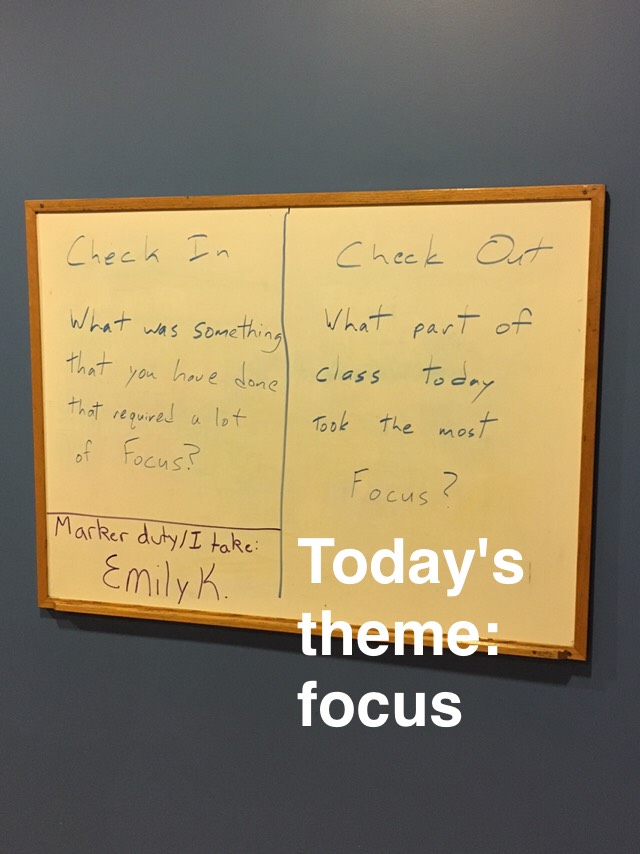 Check In
What was something
that you have done
that required a lot
of Focus?
Marker duty/I take:
Emily K.
Check Out
What part of
class today
took the most
Focus?
Today's
theme:
focus